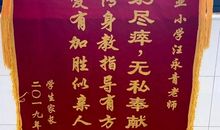 小学汪永青老师
尽瘁，无私奉献
传身教指导有方
爱有加胜似亲人
学生家长
二〇一九年